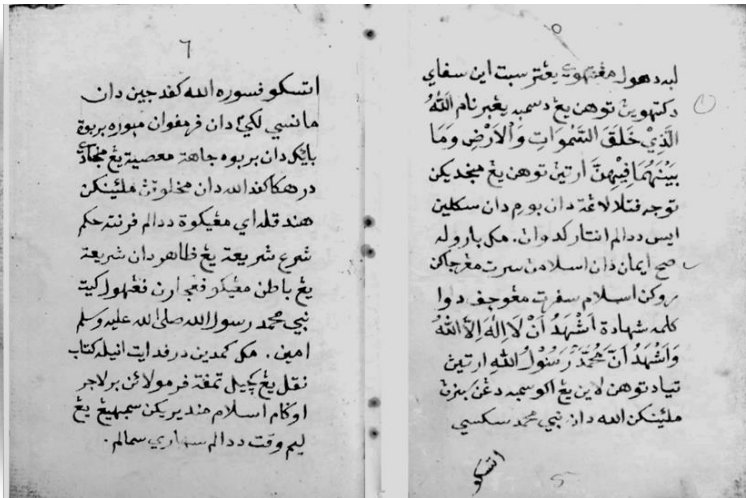 لبه دهول مڠتهوي يڠترسبت اين سفاي
دكتهوين توهن يڠ دسمبه يڠبرنام اَللّٰهُ
الَّذِيْ خَلَقَ السَّمٰوَاتِ وَالْاَرْضِ وَمَا
بَيْنَهُمَا فِيْهِنَّ ارتين توهن يڠ منجديكن
توجه فتلا لاڠة دان بوم دان سكلين
ايس ددالم انتار كدوان. مك بارو له
صح ايمان دان اسلامن سرت مڠرجاكن
روكن اسلام سفرت مڠوچف دوا
كلمه شهادة اَشْهَدُ اَنْ لَا اِلٰهَ اِلَّا اللّٰهُ
وَاَشْهَدُ اَنَّ مُحَمَّدًا رَّسُوْلُ اللّٰهِ ارتين
تياد توهن لاين يڠ اكو سمبه دڠن بنرڽ
ملينكن الله دان نبي محمد سكسي
اتسكو
٥
٦
اتسكو فسوره الله كفد جين دان
مانسي لكي٢ دان فرمفوان مپوره بربوة
بايك دان بربوه جاهة معصية يڠ منجادي
درهكا كفد الله دان مخلوقن ملينكن
هندقله اي مڠيكوة ددالم فرنته حكم
شرع شريعة يڠ ظاهر دان شريعة
يڠ باطن مڠيكو فڠجارن فڠهول كيت
نبي محمد رسول الله صلى الله عليه وسلم
امين. مك كمدين درفد ايت انيله كتاب
نقل يڠ كچيل تمفة فرمولائن برلاجر
اوكام اسلام منديريكن سمبهيڠ يڠ
ليم وقت ددالم سهاري سمالم.